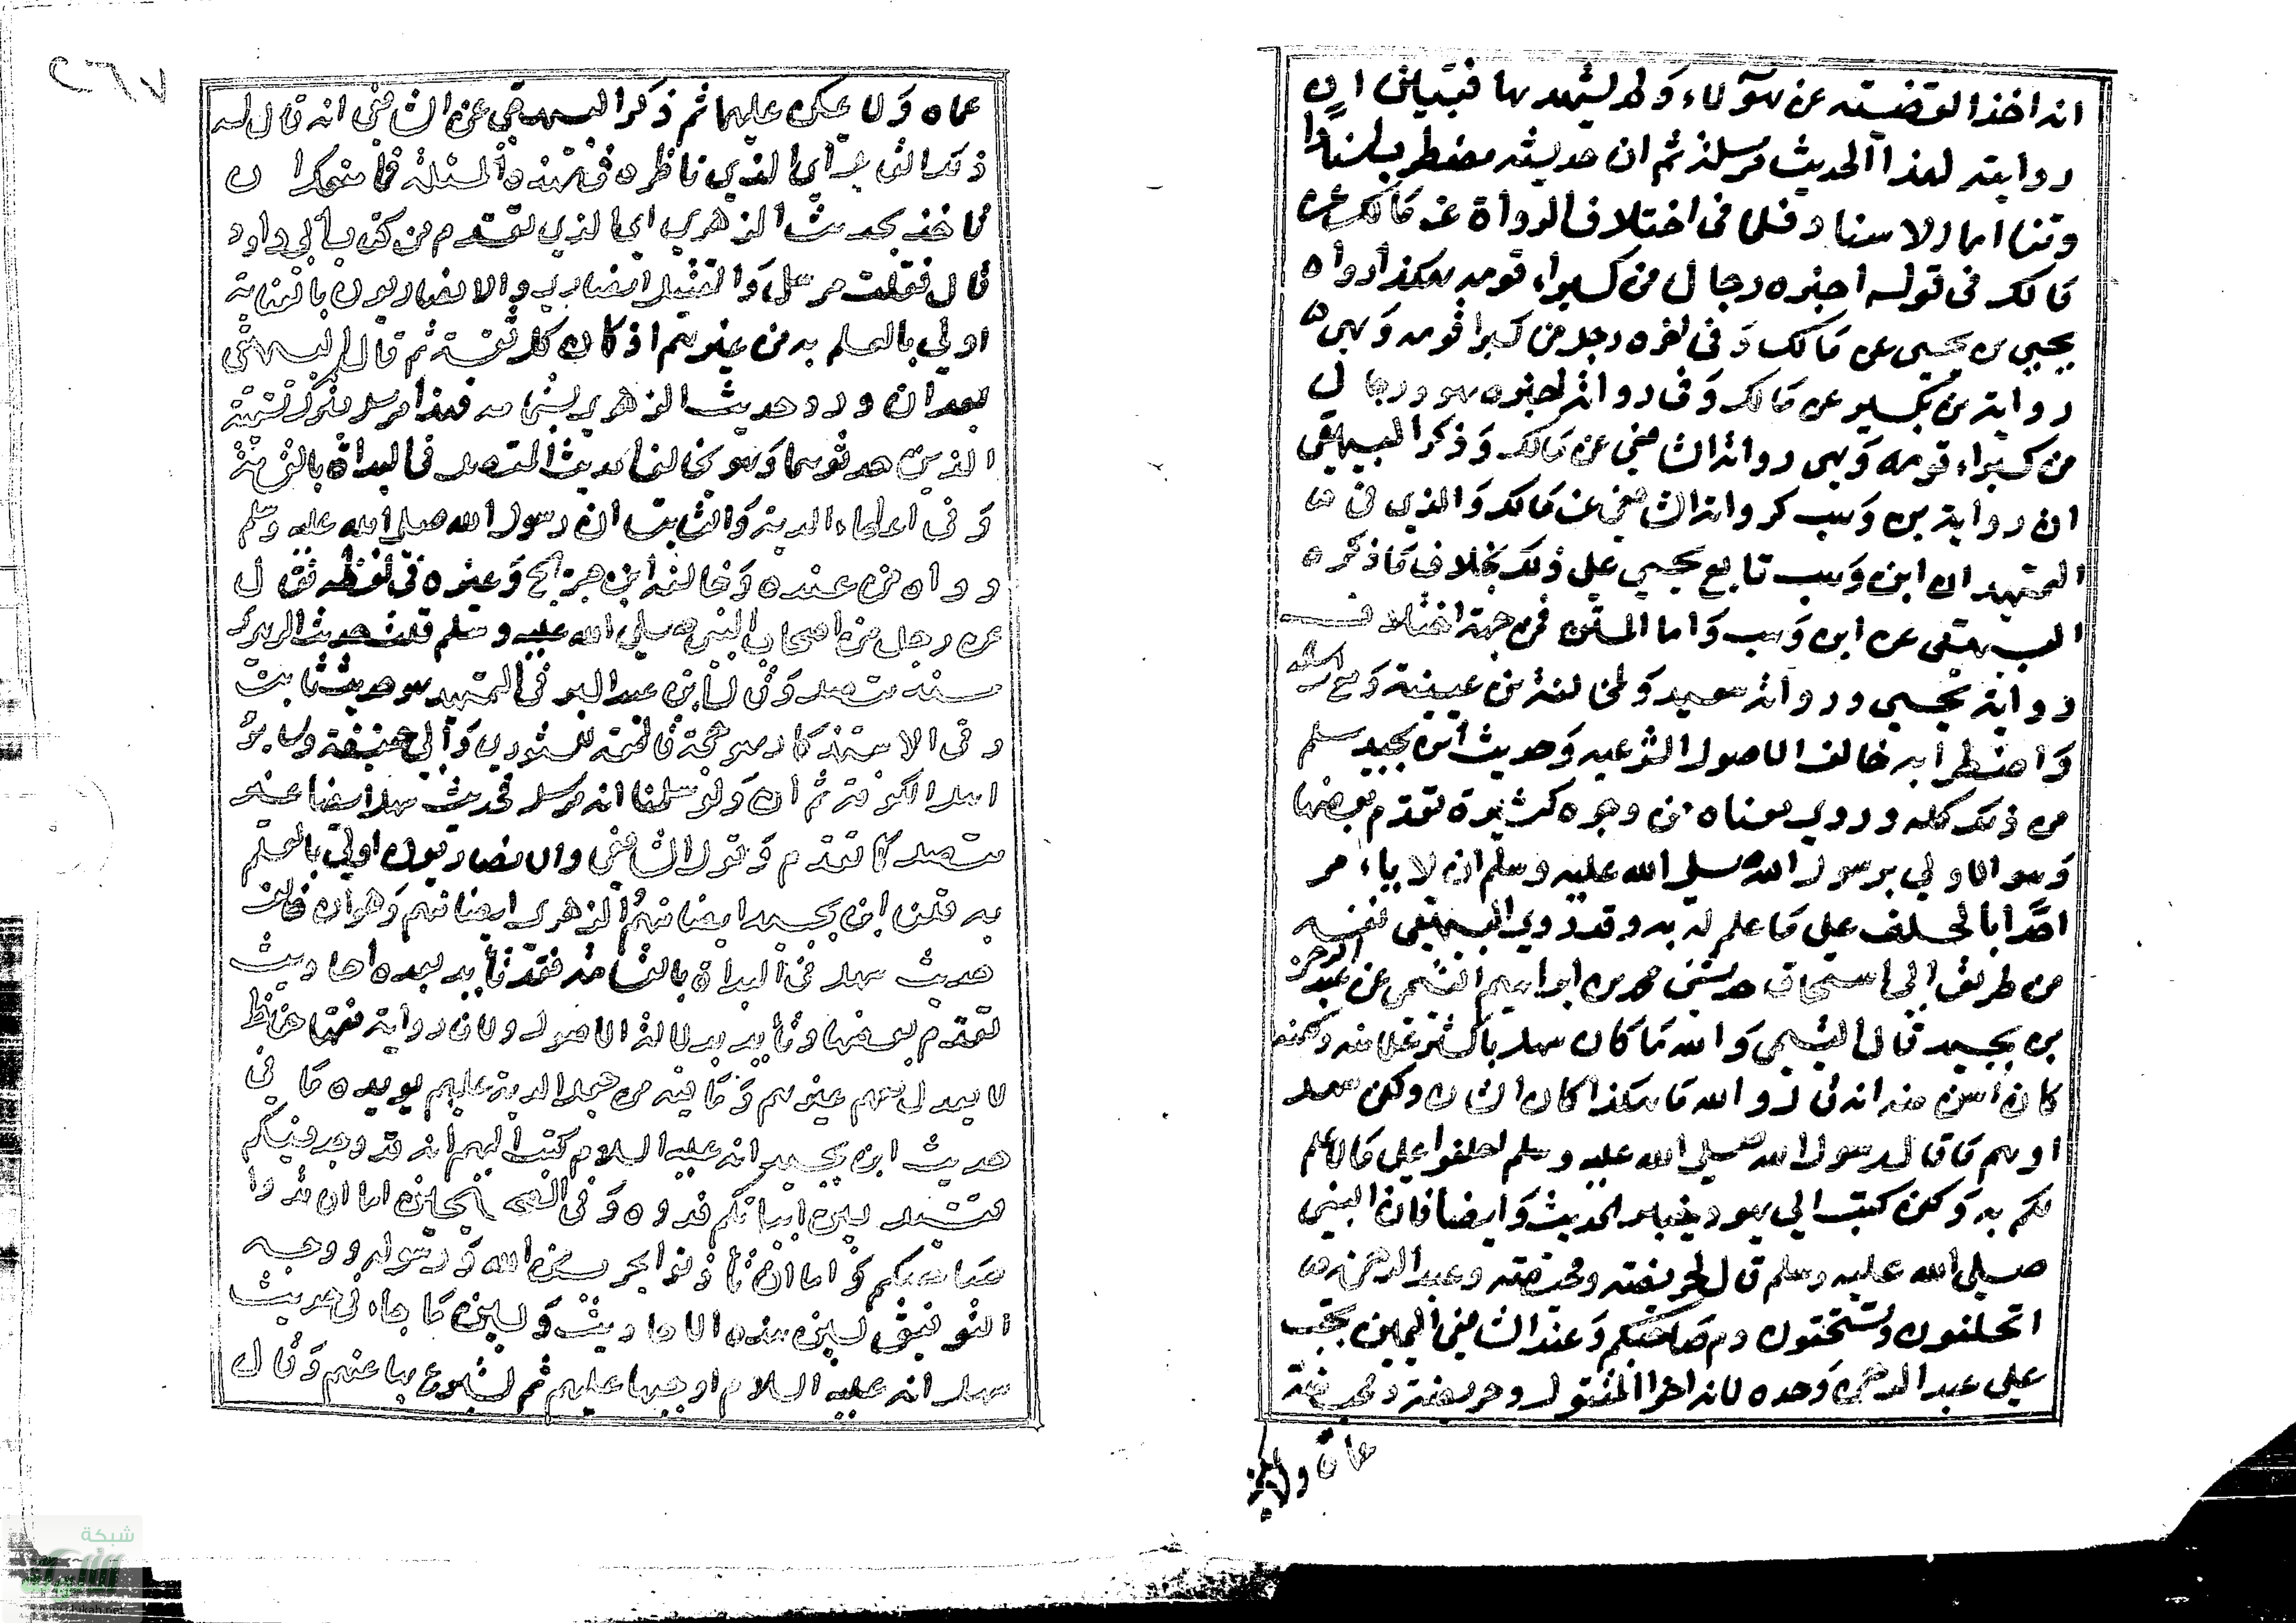 انه اخذ القضيته عن هؤلاء ولم يشهدها فتبين ان
روايته لهذا الحديث مرسلة ثم ان حديثه مضطرب اسنادا
ومتنا اما الاسناد فلما فى اختلاف الرواة عن مالك عن
مالك فى قوله اخبره رجال من كبراء قومه هكذا رواه
يحيى بن يحيى عن مالك وفى اخره رجل من كبرا قومه وهى
رواية بن بكير عن مالك وفى رواية اخبره هو ورجال
من كبراء قومه وهى رواية الشافعى عن مالك وذكر البيهقى
ان رواية بن وهب كرواية الشافعى عن مالك والذى فى
التمهيد ان ابن وهب تابع يحيى على ذلك بخلاف ما ذكره
البيهقى عن ابن وهب واما المتن فمن جهة اختلاف
رواية يحيى ورواية سعيد ومخالفة بن عيينة ومع ارساله
واضطرابه خالف الاصول الشرعيه وحديث ابن بجيد سلم
من ذلك كله وروي معناه من وجوه كثيرة تقدم بعضها
وهو الاولى برسول الله صلى الله عليه وسلم ان لا يامر
احدا بالحلف على ما علم له به وقد روى البيهقى نفسه
من طريق ابى اسحاق حدثنى محمد بن ابراهيم التيمى عن عبد الرحمن
بن بجيد قال التيمى والله ما كان سهل باكثر علما منه ولكنه
كان اسن منه انه قال والله ما هكذا كان الشان ولكن سهل
اوهم ما قال رسول الله صلى الله عليه وسلم احلفوا على ما لا علم
لكم به ولكن كتب الى يهود خيبر الحديث وايضا فان النبى
صلى الله عليه وسلم قال لحويصة ومحيصة وعبد الرحمن
اتحلفون وتستحقون دم صاحبكم وعند الشافعى اليمين تجب
على عبد الرحمن وحده لانه اخو المقتول وحويصة ومحيصة
عماه ولا
٢٦٧
عماه ولا يمين عليهما ثم ذكر البيهقى عن الشافعى انه قال له
ذلك الشافعى اى الذى ناظره فى هذه المسئلة فما منعك ان
تاخذ بحديث الزهرى اى الذى تقدم من كتاب ابى داود
قال فقلت مرسل والقتيل انصارى والانصاريون بالعناية
اولى بالعلم به من غيرهم اذ كان كل ثقة ثم قال البيهقى
بعد ان ورد حديث الزهرى بتمامه فهذا مرسل بترك تسمية
الذين حدثوهما وهو يخالف الحديث المتصل فى البداة بالقسامة
وفى اعطاء الدية والثابت ان رسول الله صلى الله عليه وسلم
وداه من عنده وخالفه ابن جريج وغيره فى لفظه فقال
عن رجل من اصحاب النبى صلى الله عليه وسلم قلت حديث الزهرى
سنده متصل وقال ابن عبد البر فى التمهيد هو حديث ثابت
وفى الاستذكار هو حجة قاطعة للثورى وابى حنيفة وسائر
اهل الكوفة ثم ان ولو سلمنا انه مرسل فحديث سهل ايضا غير
متصل كما تقدم وقول الشافعى والانصاريون اولى بالعلم
به قلت ابن بجيد ايضا منهم والزهرى ايضا منهم وهو ان خالف
حديث سهل فى البداة بالقسامة فقد تأيد بعده احاديث
تقدم بعضها وتأيد بدلالة الاصول ولان رواية ثقة حافظ
لا يعدل بهم غيرهم وما فيه من جعل الدية عليهم يويده ما فى
حديث ابن بجيد انه عليه السلام كتب اليهم انه قد وجد فيكم
قتيل بين ابياتكم فدوه وفى الصحيحين اما ان تدوا
صاحبكم واما ان تأذنوا بحرب من الله ورسوله ووجه
التوفيق بين هذه الاحاديث وبين ما جاء فى حديث
سهل انه عليه السلام اوجبها عليهم ثم تبرع بها عنهم وقال
شبكة